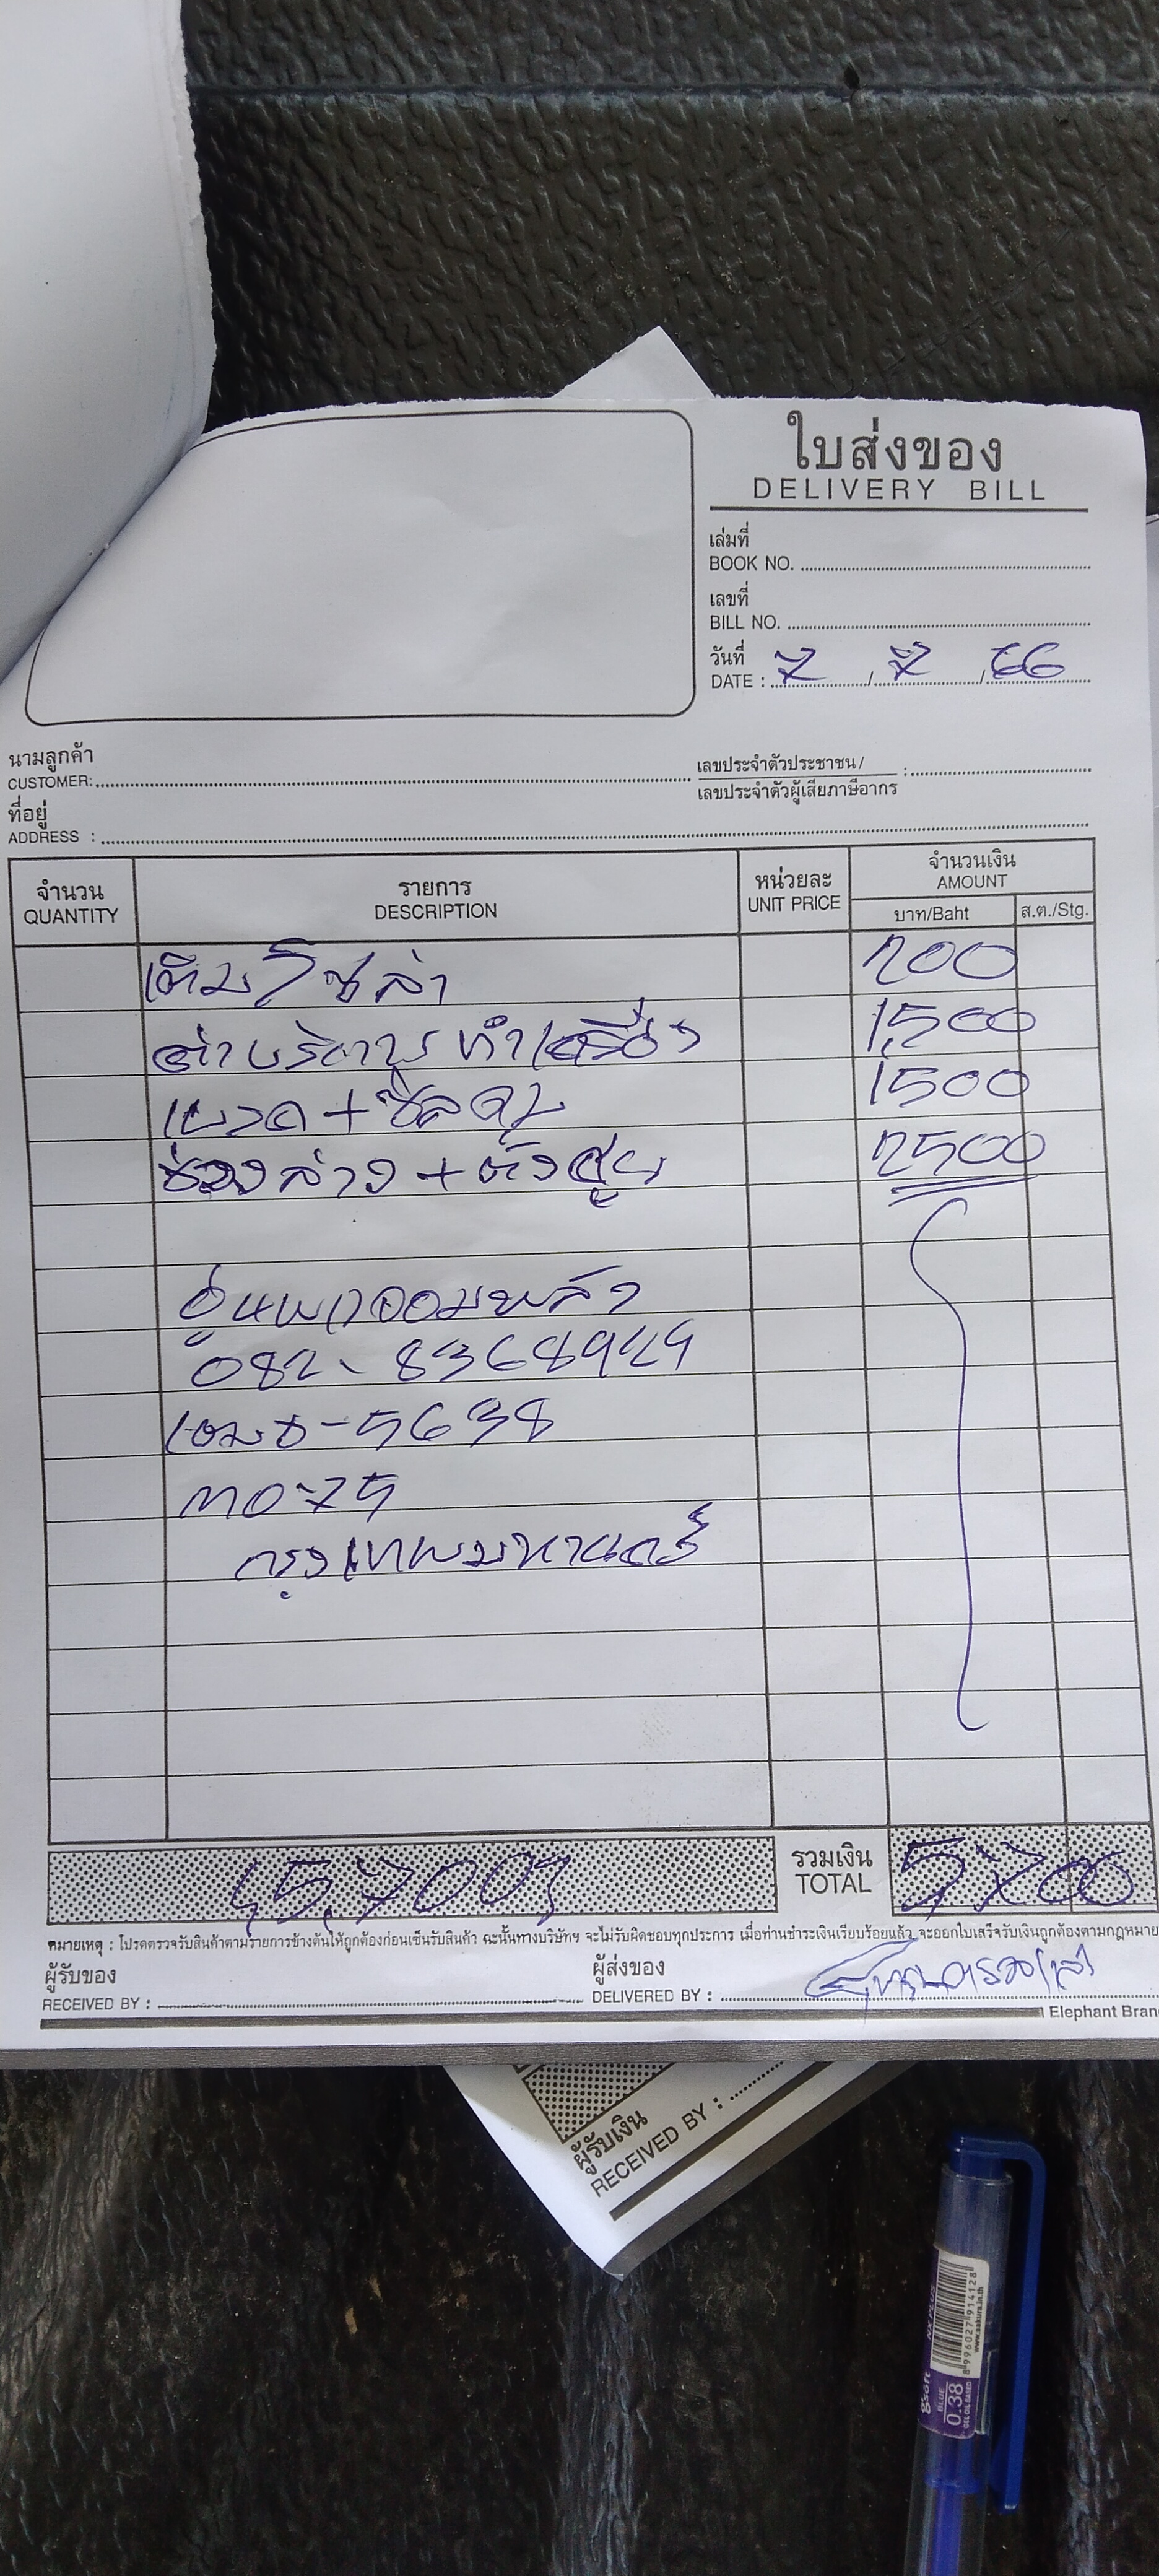 ใบส่งของ
DELIVERY BILL
เล่มที่
BOOK NO.
เลขที่
BILL NO.
วันที่
DATE : 7 / 7 / 66
นามลูกค้า
CUSTOMER:
เลขประจำตัวประชาชน /
เลขประจำตัวผู้เสียภาษีอากร :
ที่อยู่
ADDRESS :
จำนวน รายการ หน่วยละ จำนวนเงิน
QUANTITY DESCRIPTION UNIT PRICE AMOUNT
บาท/Baht ส.ต./Stg.
เติม 200
ค่าบริการทำเครื่อง 1,500
เบรค + ซีลดุม 1500
ช่องล่าง + ตั้งศูน 2500
อู่
082-8368929
5638
75
กรุงเทพมหานคร
(5,700) รวมเงิน 5700
TOTAL
หมายเหตุ : โปรดตรวจรับสินค้าตามรายการข้างต้นให้ถูกต้องก่อนเซ็นรับสินค้า ฉะนั้นทางบริษัทฯ จะไม่รับผิดชอบทุกประการ เมื่อท่านชำระเงินเรียบร้อยแล้ว จะออกใบเสร็จรับเงินถูกต้องตามกฎหมาย
ผู้รับของ ผู้ส่งของ
RECEIVED BY : DELIVERED BY :
Elephant Bran
ผู้รับเงิน
RECEIVED BY :
gsoft
BLUE
0.38
GEL OIL BASED
8996027914128
www.sakura.in.th